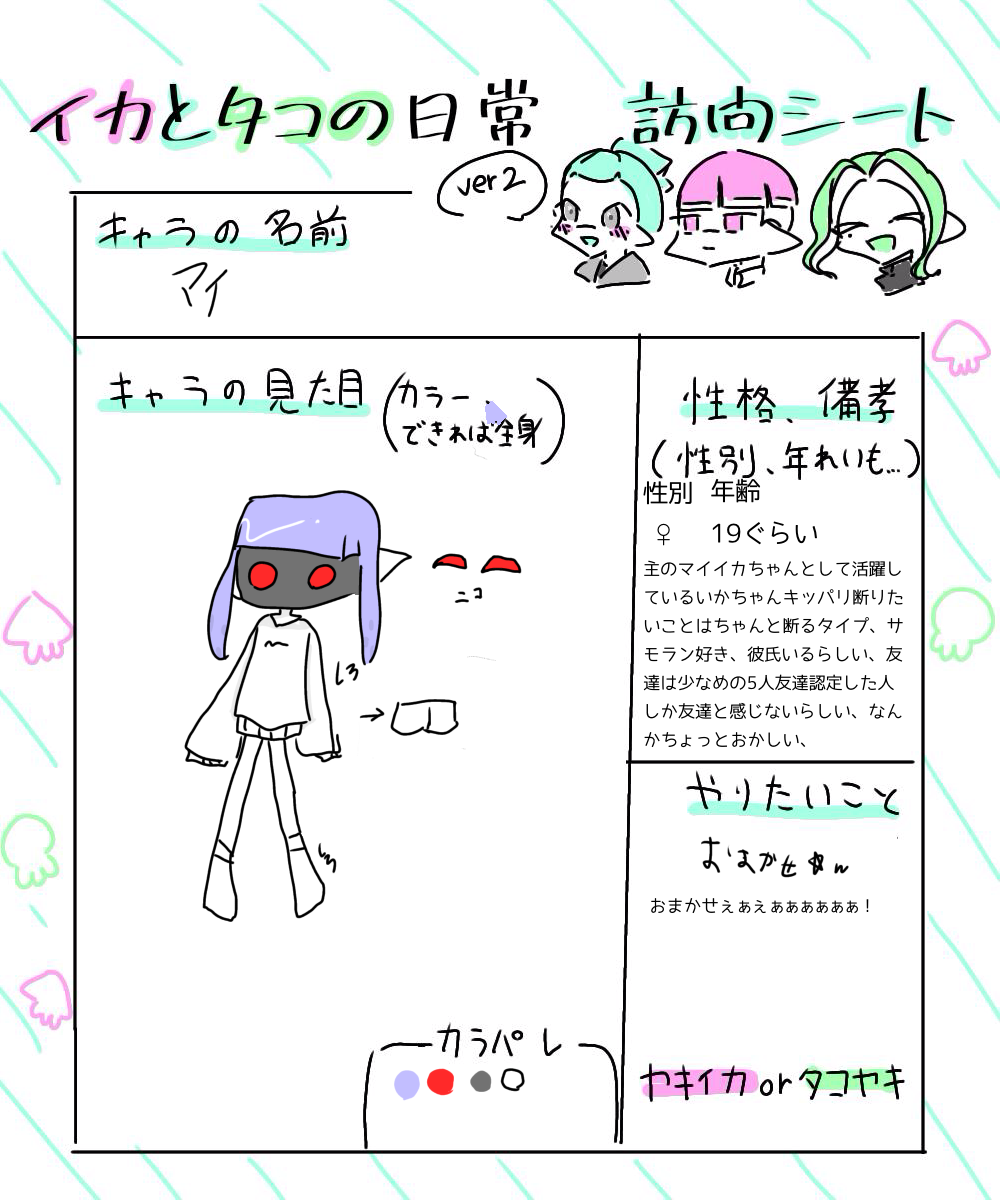 イカとタコの日常 訪問シート
ver2
キャラの名前
マイ
キャラの見た目(カラー・
できれば全身)
ニコ
しろ
しろ
カラパレ
性格、備考
(性別、年れいも…)
性別 年齢
♀ 19ぐらい
主のマイイカちゃんとして活躍し
ているいかちゃんキッパリ断りた
いことはちゃんと断るタイプ、サ
モラン好き、彼氏いるらしい、友
達は少なめの5人友達認定した人
しか友達と感じないらしい、なん
かちょっとおかしい、
やりたいこと
おまかせ☆w
おまかせぇぁぇぁぁぁぁぁぁ!
ヤキイカorタコヤキ